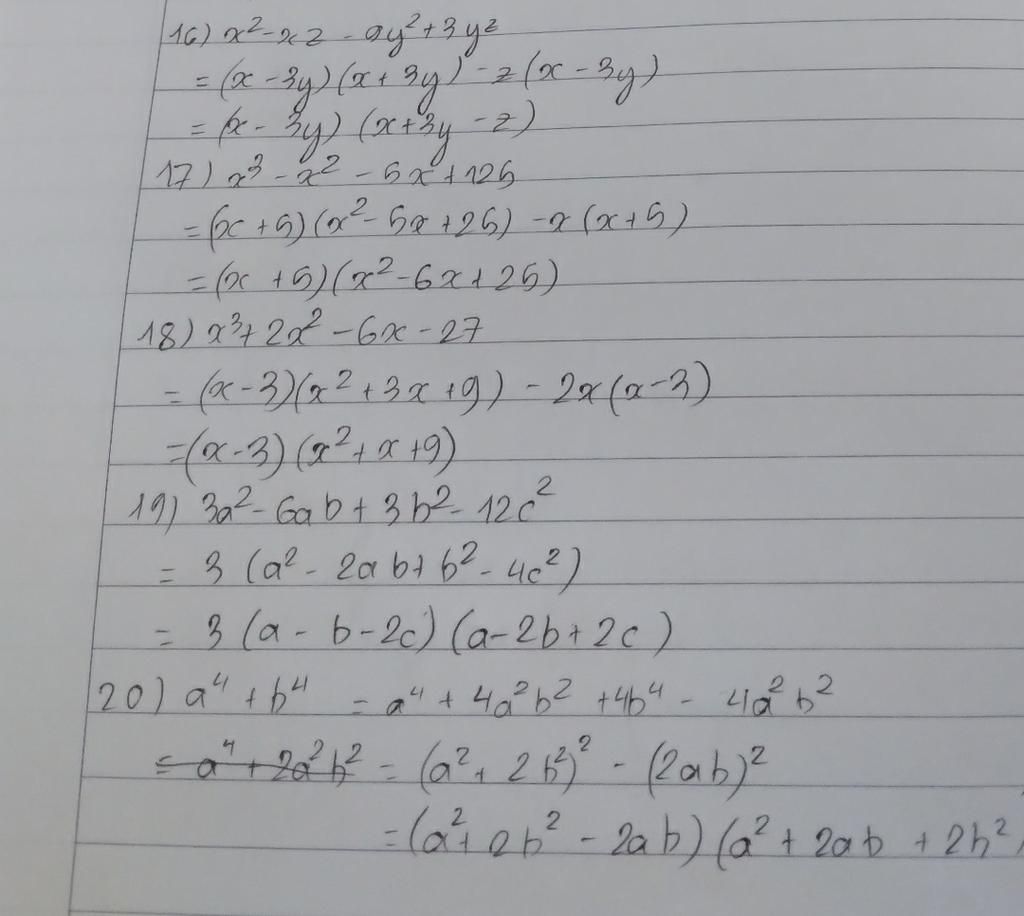 16) x² - xz - 9y² + 3yz
= (x - 3y) (x + 3y) - z (x - 3y)
= (x - 3y) (x + 3y - z)
17) x³ - x² - 5x + 125
= (x + 5) (x² - 5x + 25) - x (x + 5)
= (x + 5) (x² - 6x + 25)
18) x³ + 2x² - 6x - 27
= (x - 3) (x² + 3x + 9) - 2x (x - 3)
= (x - 3) (x² + x + 9)
19) 3a² - 6ab + 3b² - 12c²
= 3 (a² - 2ab + b² - 4c²)
= 3 (a - b - 2c) (a - 2b + 2c)
20) a⁴ + b⁴ = a⁴ + 4a²b² + 4b⁴ - 4a²b²
= a⁴ + 2a²b² = (a² + 2b²)² - (2ab)²
= (a² + 2b² - 2ab) (a² + 2ab + 2b²)